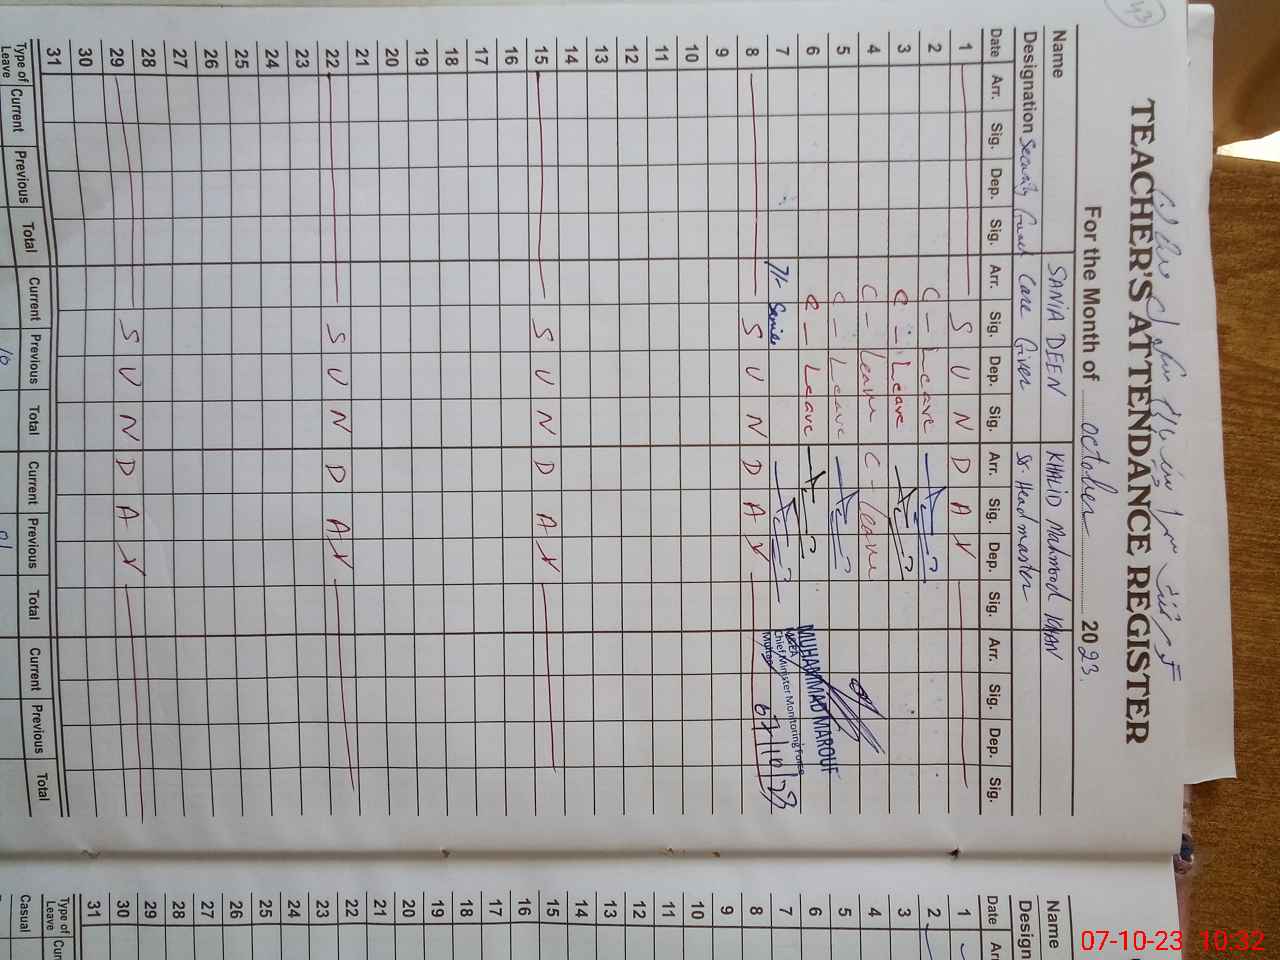 43
TEACHER'S ATTENDANCE REGISTER
For the Month of October 2023.
Name SANIA DEEN KHALID Mahmood KHAN
Designation Security Guard Care Giver Sr. Head master
Date Arr. Sig. Dep. Sig. Arr. Sig. Dep. Sig. Arr. Sig. Dep. Sig. Arr. Sig. Dep. Sig.
1 S U N D A Y
2 C - Leave
3 C - Leave
4 C - Leave C - Leave
5 C - Leave
6 C - Leave
7 7/- Sania
MUHAMMAD MAROUF
Chief Minister Monitoring Force
07/10/23
8 S U N D A Y
9
10
11
12
13
14
15 S U N D A Y
16
17
18
19
20
21
22 S U N D A Y
23
24
25
26
27
28
29 S U N D A Y
30
31
Type of Leave Current Previous Total Current Previous Total Current Previous Total Current Previous Total
10 01
Name
Design
Date Arr
1
2
3
4
5
6
7
8
9
10
11
12
13
14
15
16
17
18
19
20
21
22
23
24
25
26
27
28
29
30
31
Type of Leave Cur
Casual
07-10-23 10:32